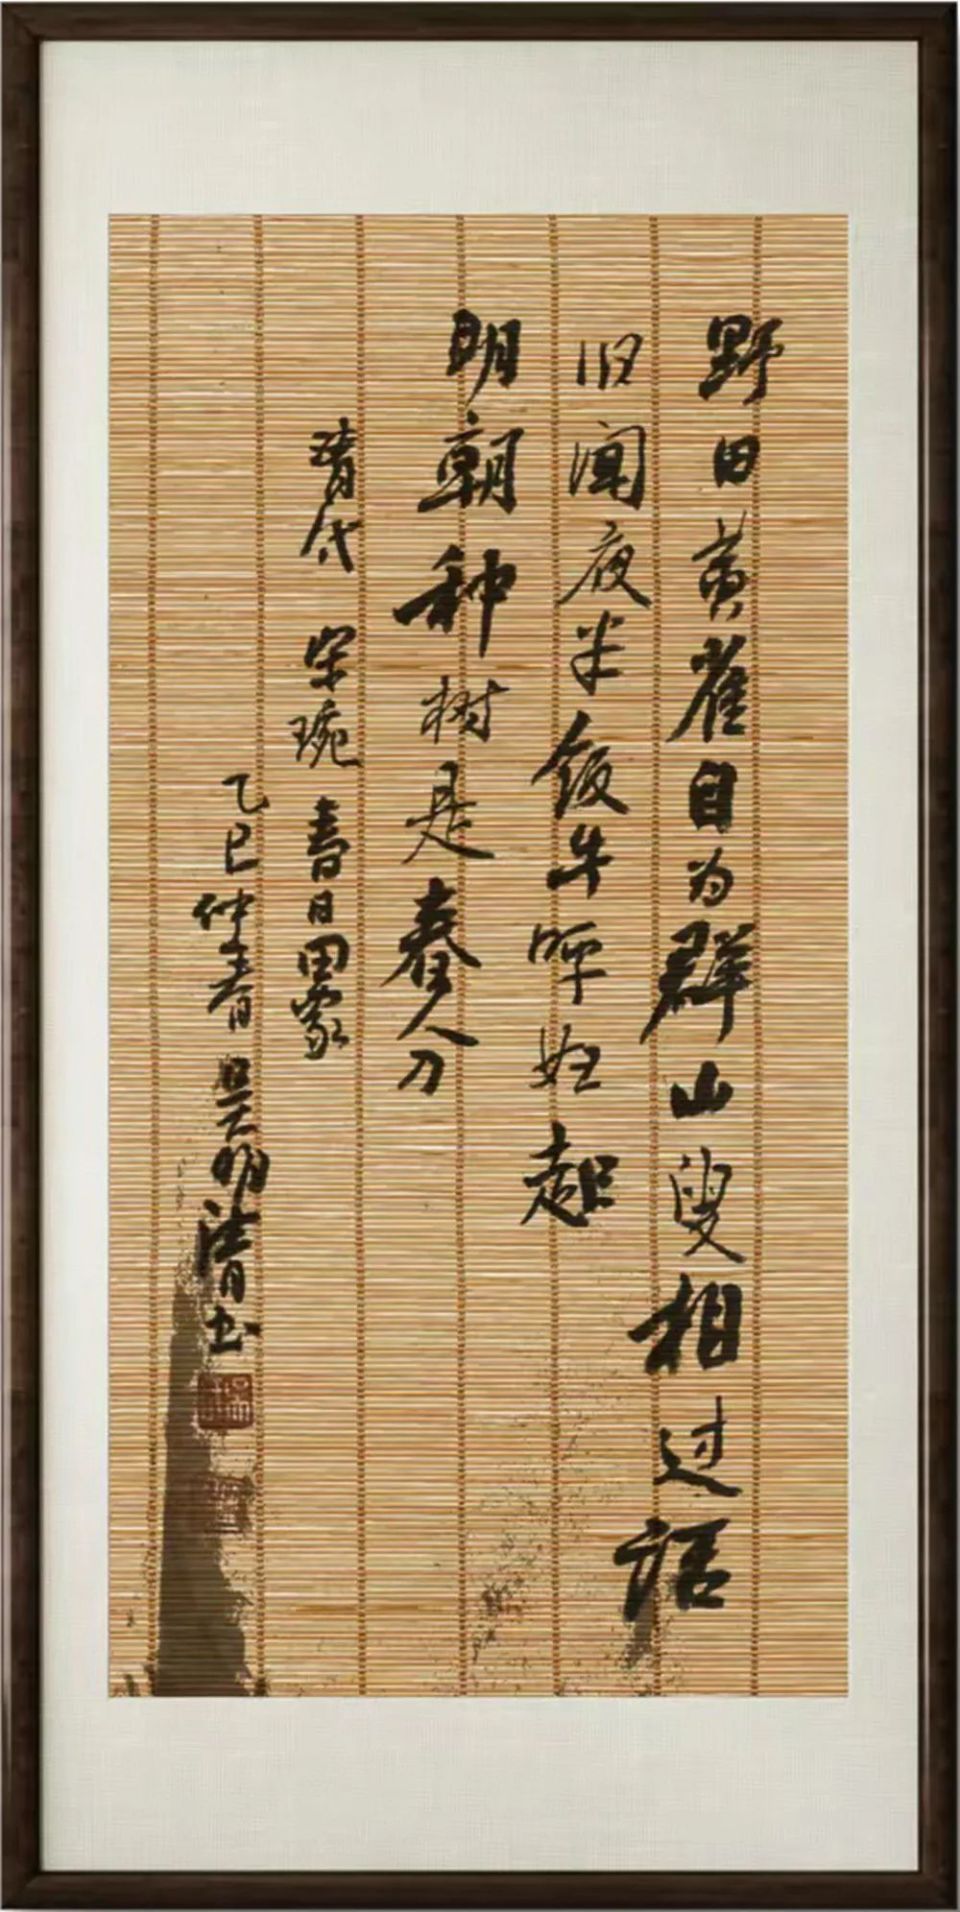 野田黄雀自为群山叟相过话
旧闻夜半饭牛呼妇起
明朝种树是春分
清代 宋琬 春日田家
乙巳仲春 吴明清书